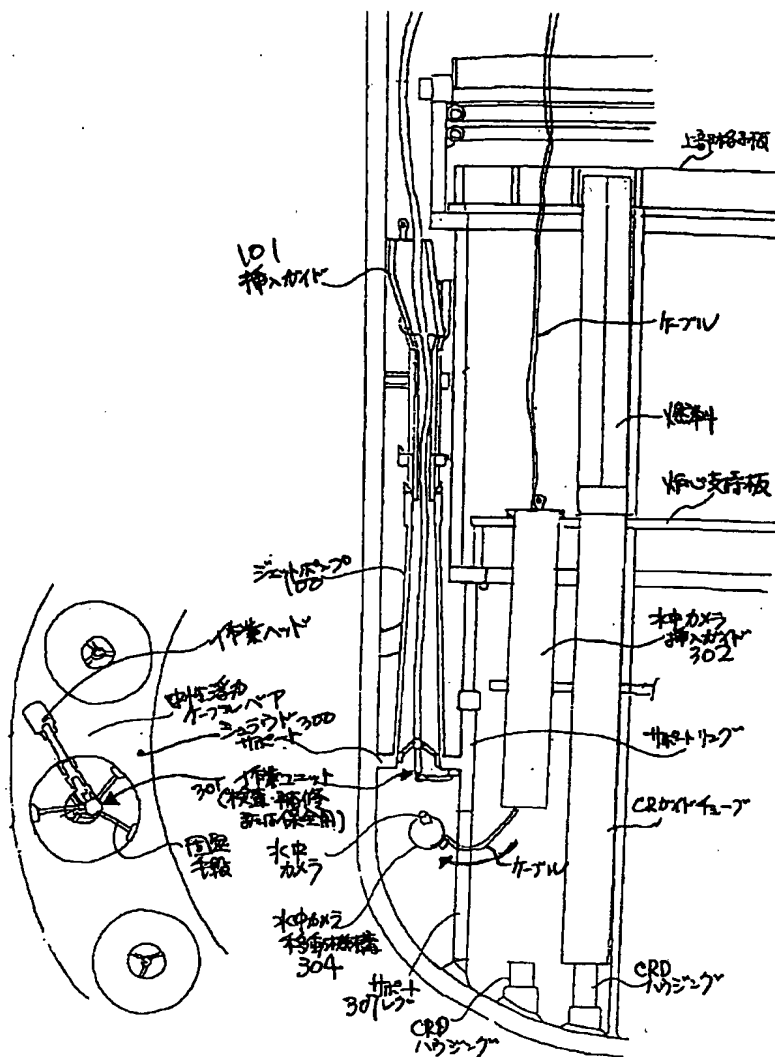 上部格子板
101
挿入ガイド
ケーブル
燃料
炉心支持板
ジェットポンプ
100
作業ヘッド
水中カメラ
挿入ガイド
302
中性浮力
ケーブルベア
シュラウド300
サポート
サポートリング
301 作業ユニット
(検査・補修
または保全用)
CRガイドチューブ
固定
手段
水中
カメラ
ケーブル
水中カメラ
移動機構
304
サポート
307レグ
CRD
ハウジング
CRD
ハウジング